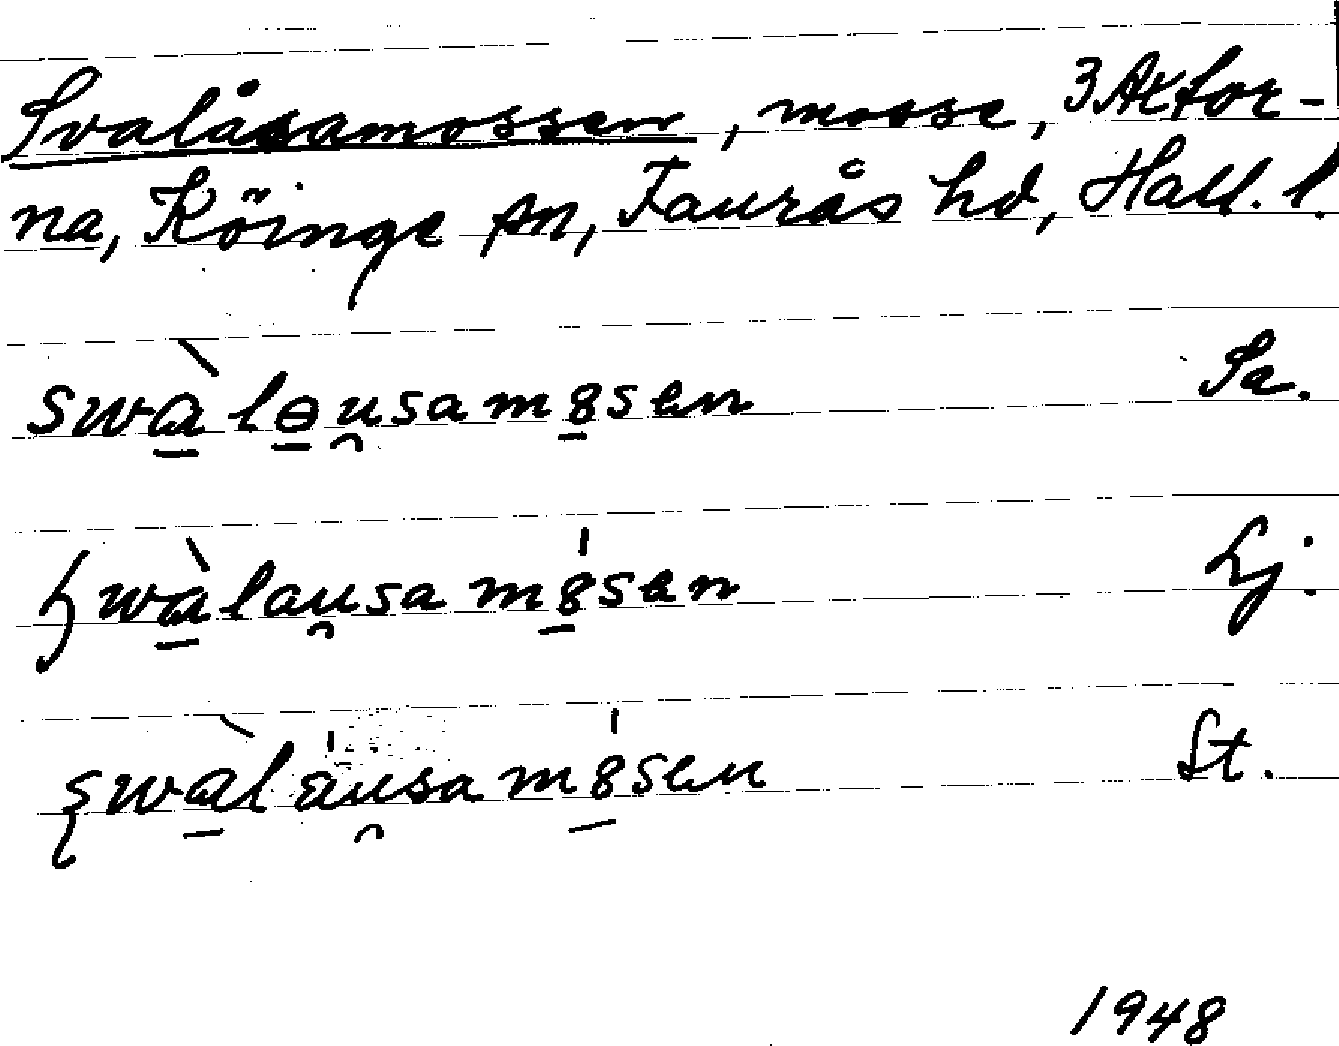 Svalåsamossen, mosse, 3 Axtor-
na, Köinge sn, Faurås hd, Hall. l.
swàlɵu̯samɞsen Sa.
ɧwàlau̯samɞ́sen Lj.
ʂwàláu̯samɞ́sen St.
1948